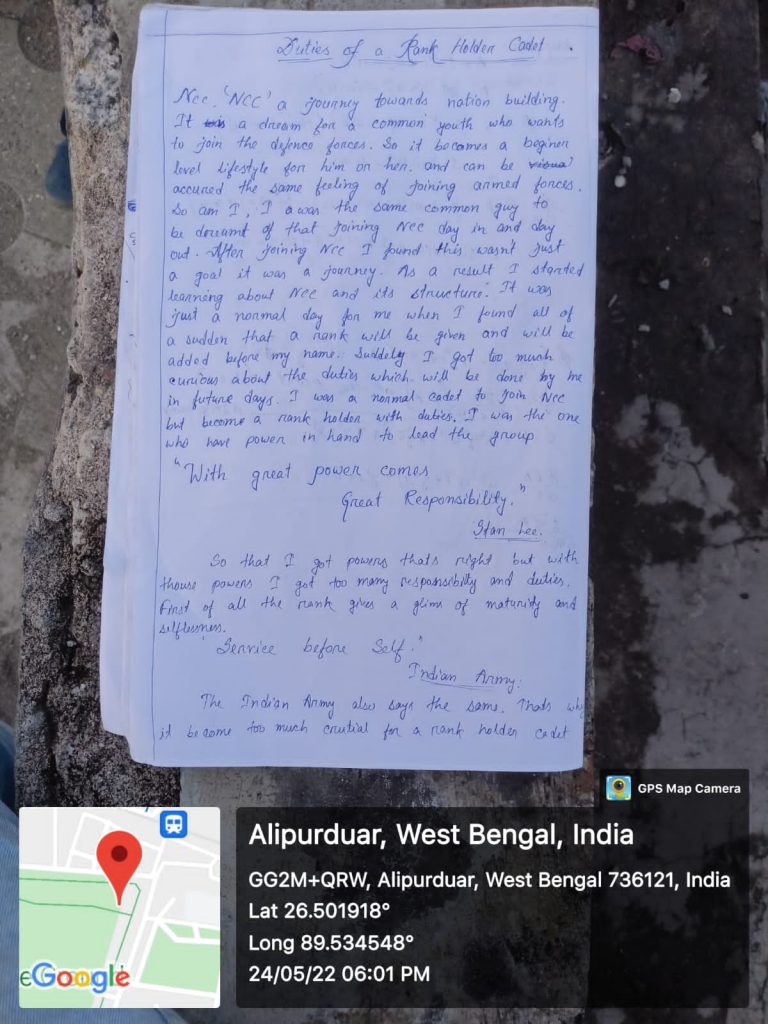 Duties of a Rank Holder Cadet
Ncc, 'NCC' a journey towards nation building.
It a dream for a common youth who wants
to join the defence forces. So it becomes a beginer
level lifestyle for him or her. and can be
accured the same feeling of joining armed forces.
So am I, I was the same common guy to
be dreamt of that joining Ncc day in and day
out. After joining Ncc I found this wasn't just
a goal it was a journey. As a result I started
learning about Ncc and its structure. It was
just a normal day for me when I found all of
a sudden that a rank will be given and will be
added before my name. Suddely I got too much
curious about the duties which will be done by me
in future days. I was a normal cadet to join Ncc
but become a rank holder with duties. I was the one
who have power in hand to lead the group
"With great power comes
Great Responsibility."
Stan Lee.
So that I got powers thats right but with
thouse powers I got too many responsibility and duties.
First of all the rank gives a glims of maturity and
selflessness.
"Service before Self."
Indian Army.
The Indian Army also says the same. Thats why
it become too much crutial for a rank holder cadet
GPS Map Camera
Alipurduar, West Bengal, India
GG2M+QRW, Alipurduar, West Bengal 736121, India
Lat 26.501918°
Long 89.534548°
24/05/22 06:01 PM
Google